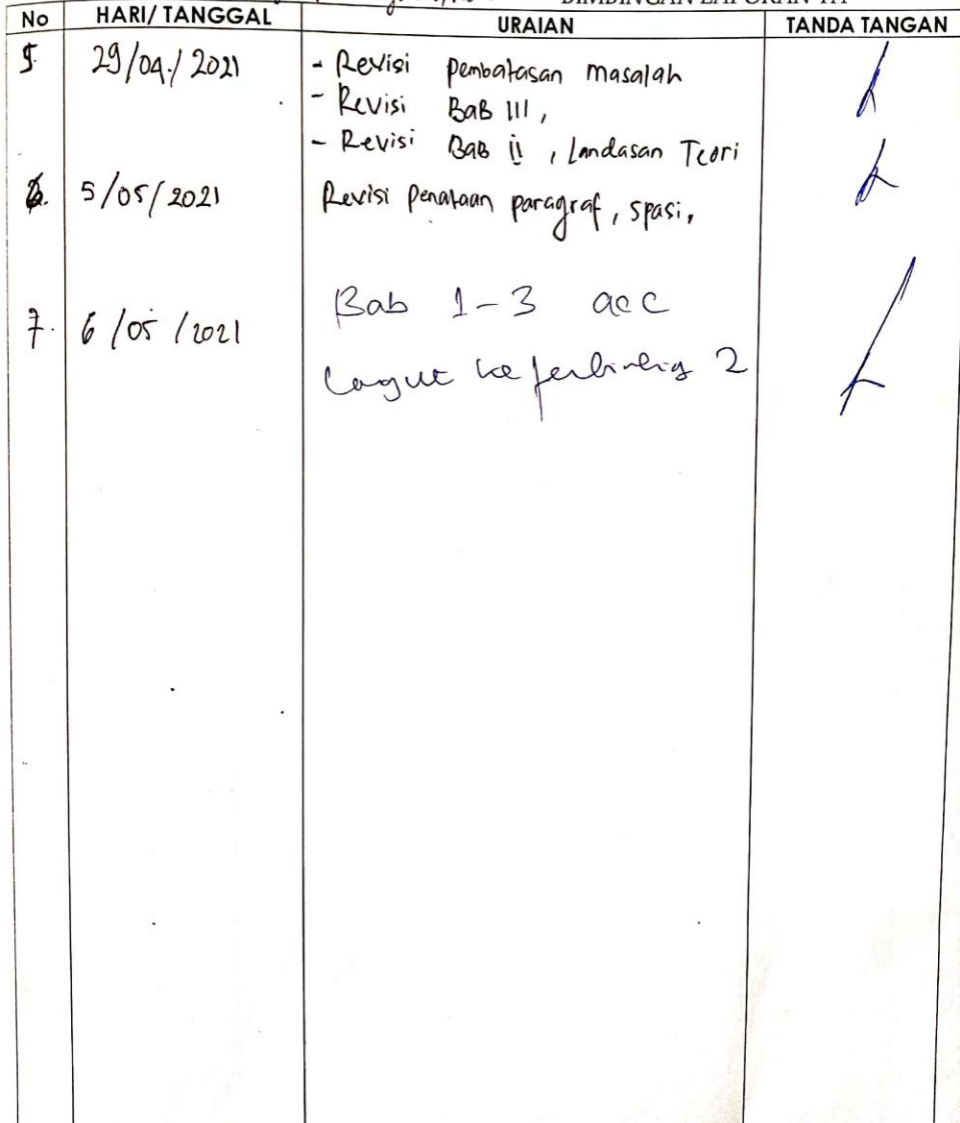 BIMBINGAN LAPORAN TA
No HARI/ TANGGAL URAIAN TANDA TANGAN
5. 29/04/2021 - Revisi pembatasan masalah
- Revisi BaB III,
- Revisi BaB ii, Landasan Teori
6. 5/05/2021 Revisi penataan paragraf, spasi,
7. 6/05/2021 Bab 1-3 acc
ke 2